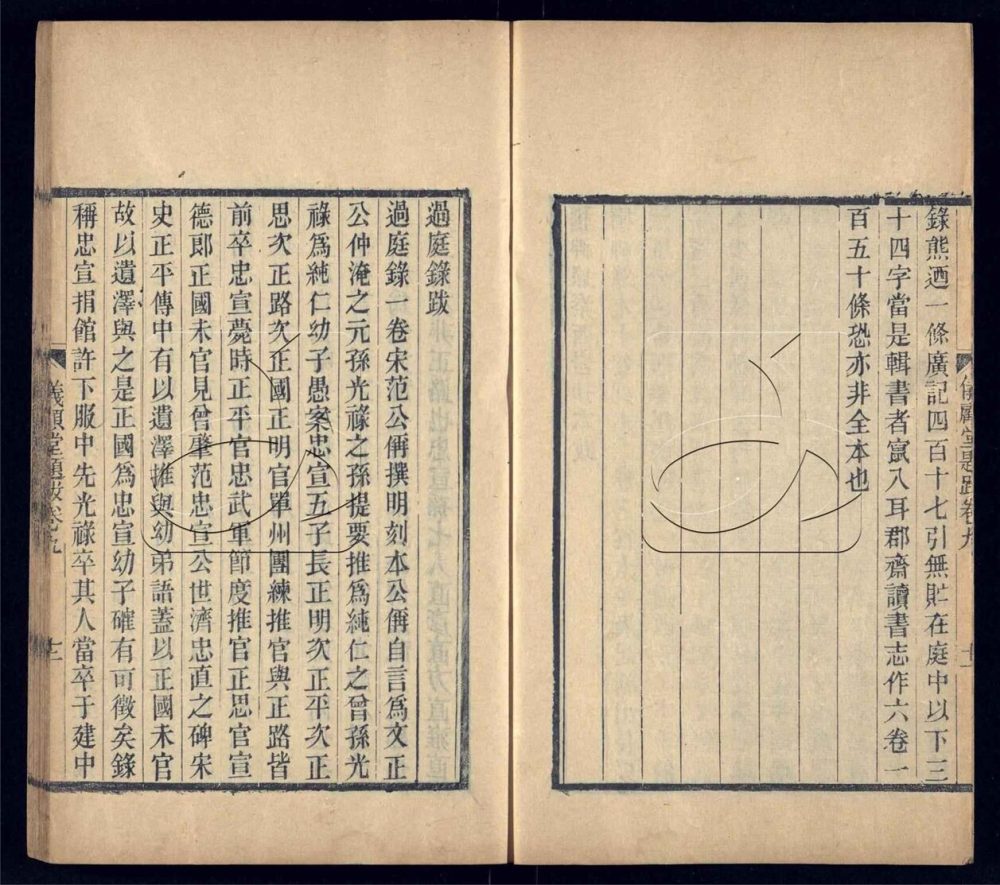 錄熊迺一條廣記四百十七引無貯在庭中以下三
十四字當是輯書者竄入耳郡齋讀書志作六卷一
百五十條恐亦非全本也
儀顧堂題跋卷九
過庭錄跋
過庭錄一卷宋范公偁撰明刻本公偁自言爲文正
公仲淹之元孫光祿之孫提要推爲純仁之曾孫光
祿爲純仁幼子愚案忠宣五子長正明次正平次正
思次正路次正國正明官單州團練推官與正路皆
前卒忠宣薨時正平官忠武軍節度推官正思官宣
德郎正國未官見曾肇范忠宣公世濟忠直之碑宋
史正平傳中有以遺澤推與幼弟語蓋以正國未官
故以遺澤與之是正國爲忠宣幼子確有可徵矣錄
稱忠宣捐館許下服中先光祿卒其人當卒于建中
儀顧堂題跋卷九